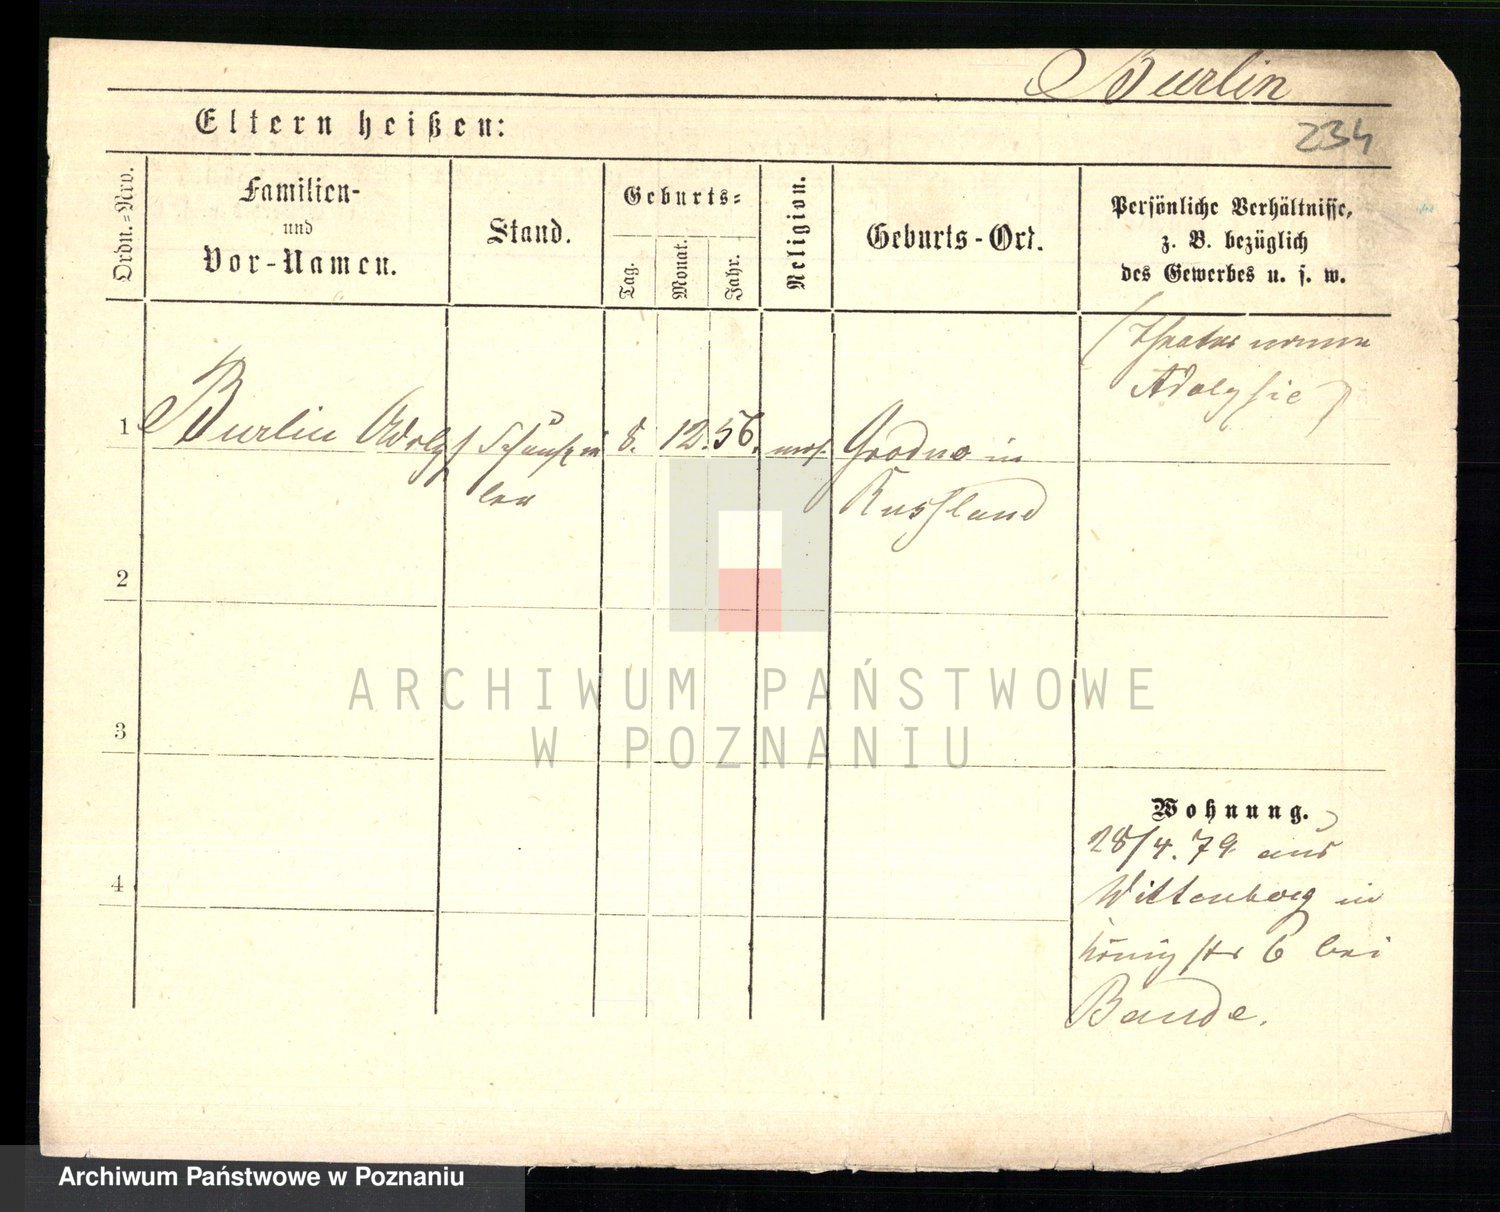 Burlin
234
Eltern heißen:
Ordn.=Nro.
Familien-
und
Vor-Namen.
Stand.
Geburts=
Tag.
Monat.
Jahr.
Religion.
Geburts-Ort.
Persönliche Verhältnisse,
z. B. bezüglich
des Gewerbes u. s. w.
(Theater
1 Burlin Adolf Schauspie 8. 12. 56. mos. Grodno in
ler Russland
2
3
4
Wohnung.
28/4. 79 aus
Wittenberg in
Königstr 6 bei
Bande.
ARCHIWUM PAŃSTWOWE
W POZNANIU
Archiwum Państwowe w Poznaniu